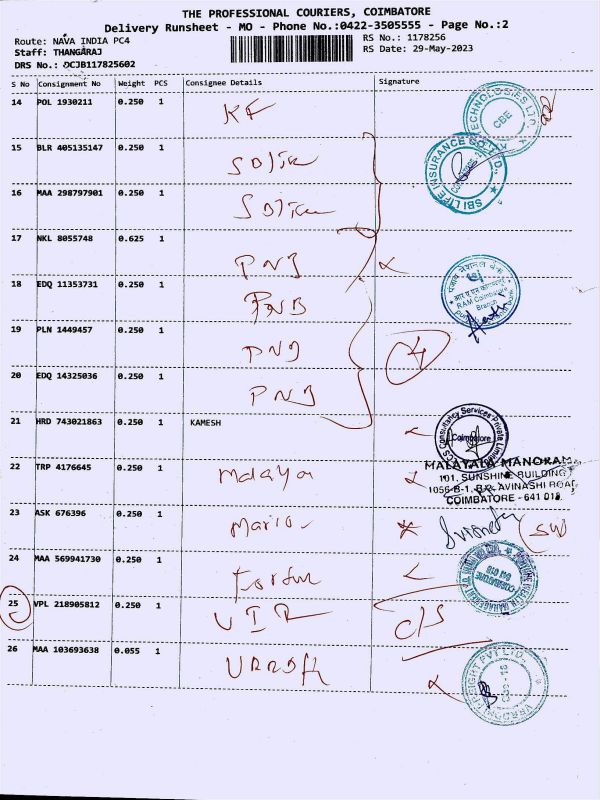 THE PROFESSIONAL COURIERS, COIMBATORE
Delivery Runsheet - MO - Phone No.:0422-3505555 - Page No.:2
Route: NAVA INDIA PC4
RS No.: 1178256
Staff: THANGARAJ
RS Date: 29-May-2023
DRS No.: DCJB117825602
S No Consignment No Weight PCS Consignee Details Signature
14 POL 1930211 0.250 1 KF
TECHNOLOGIES LTD. CBE
15 BLR 405135147 0.250 1
SBI LIFE INSURANCE CO. LTD.,
16 MAA 298797901 0.250 1
17 NKL 8055748 0.625 1 PNB
18 EDQ 11353731 0.250 1 PNB
RAM Coimbatore Branch
19 PLN 1449457 0.250 1 PNB
20 EDQ 14325036 0.250 1 PNB
21 HRD 743021863 0.250 1 KAMESH
Consultancy Services Private Limited
Coimbatore
MALAYALA MANORAMA
22 TRP 4176645 0.250 1 Malaya
101, SUNSHINE BUILDING
1056-B-1, AVINASHI ROAD
COIMBATORE - 641 018.
23 ASK 676396 0.250 1
24 MAA 569941730 0.250 1
COIMBATORE 641 018
25 VPL 218905812 0.250 1 c/s
26 MAA 103693638 0.055 1
PVT LTD.,